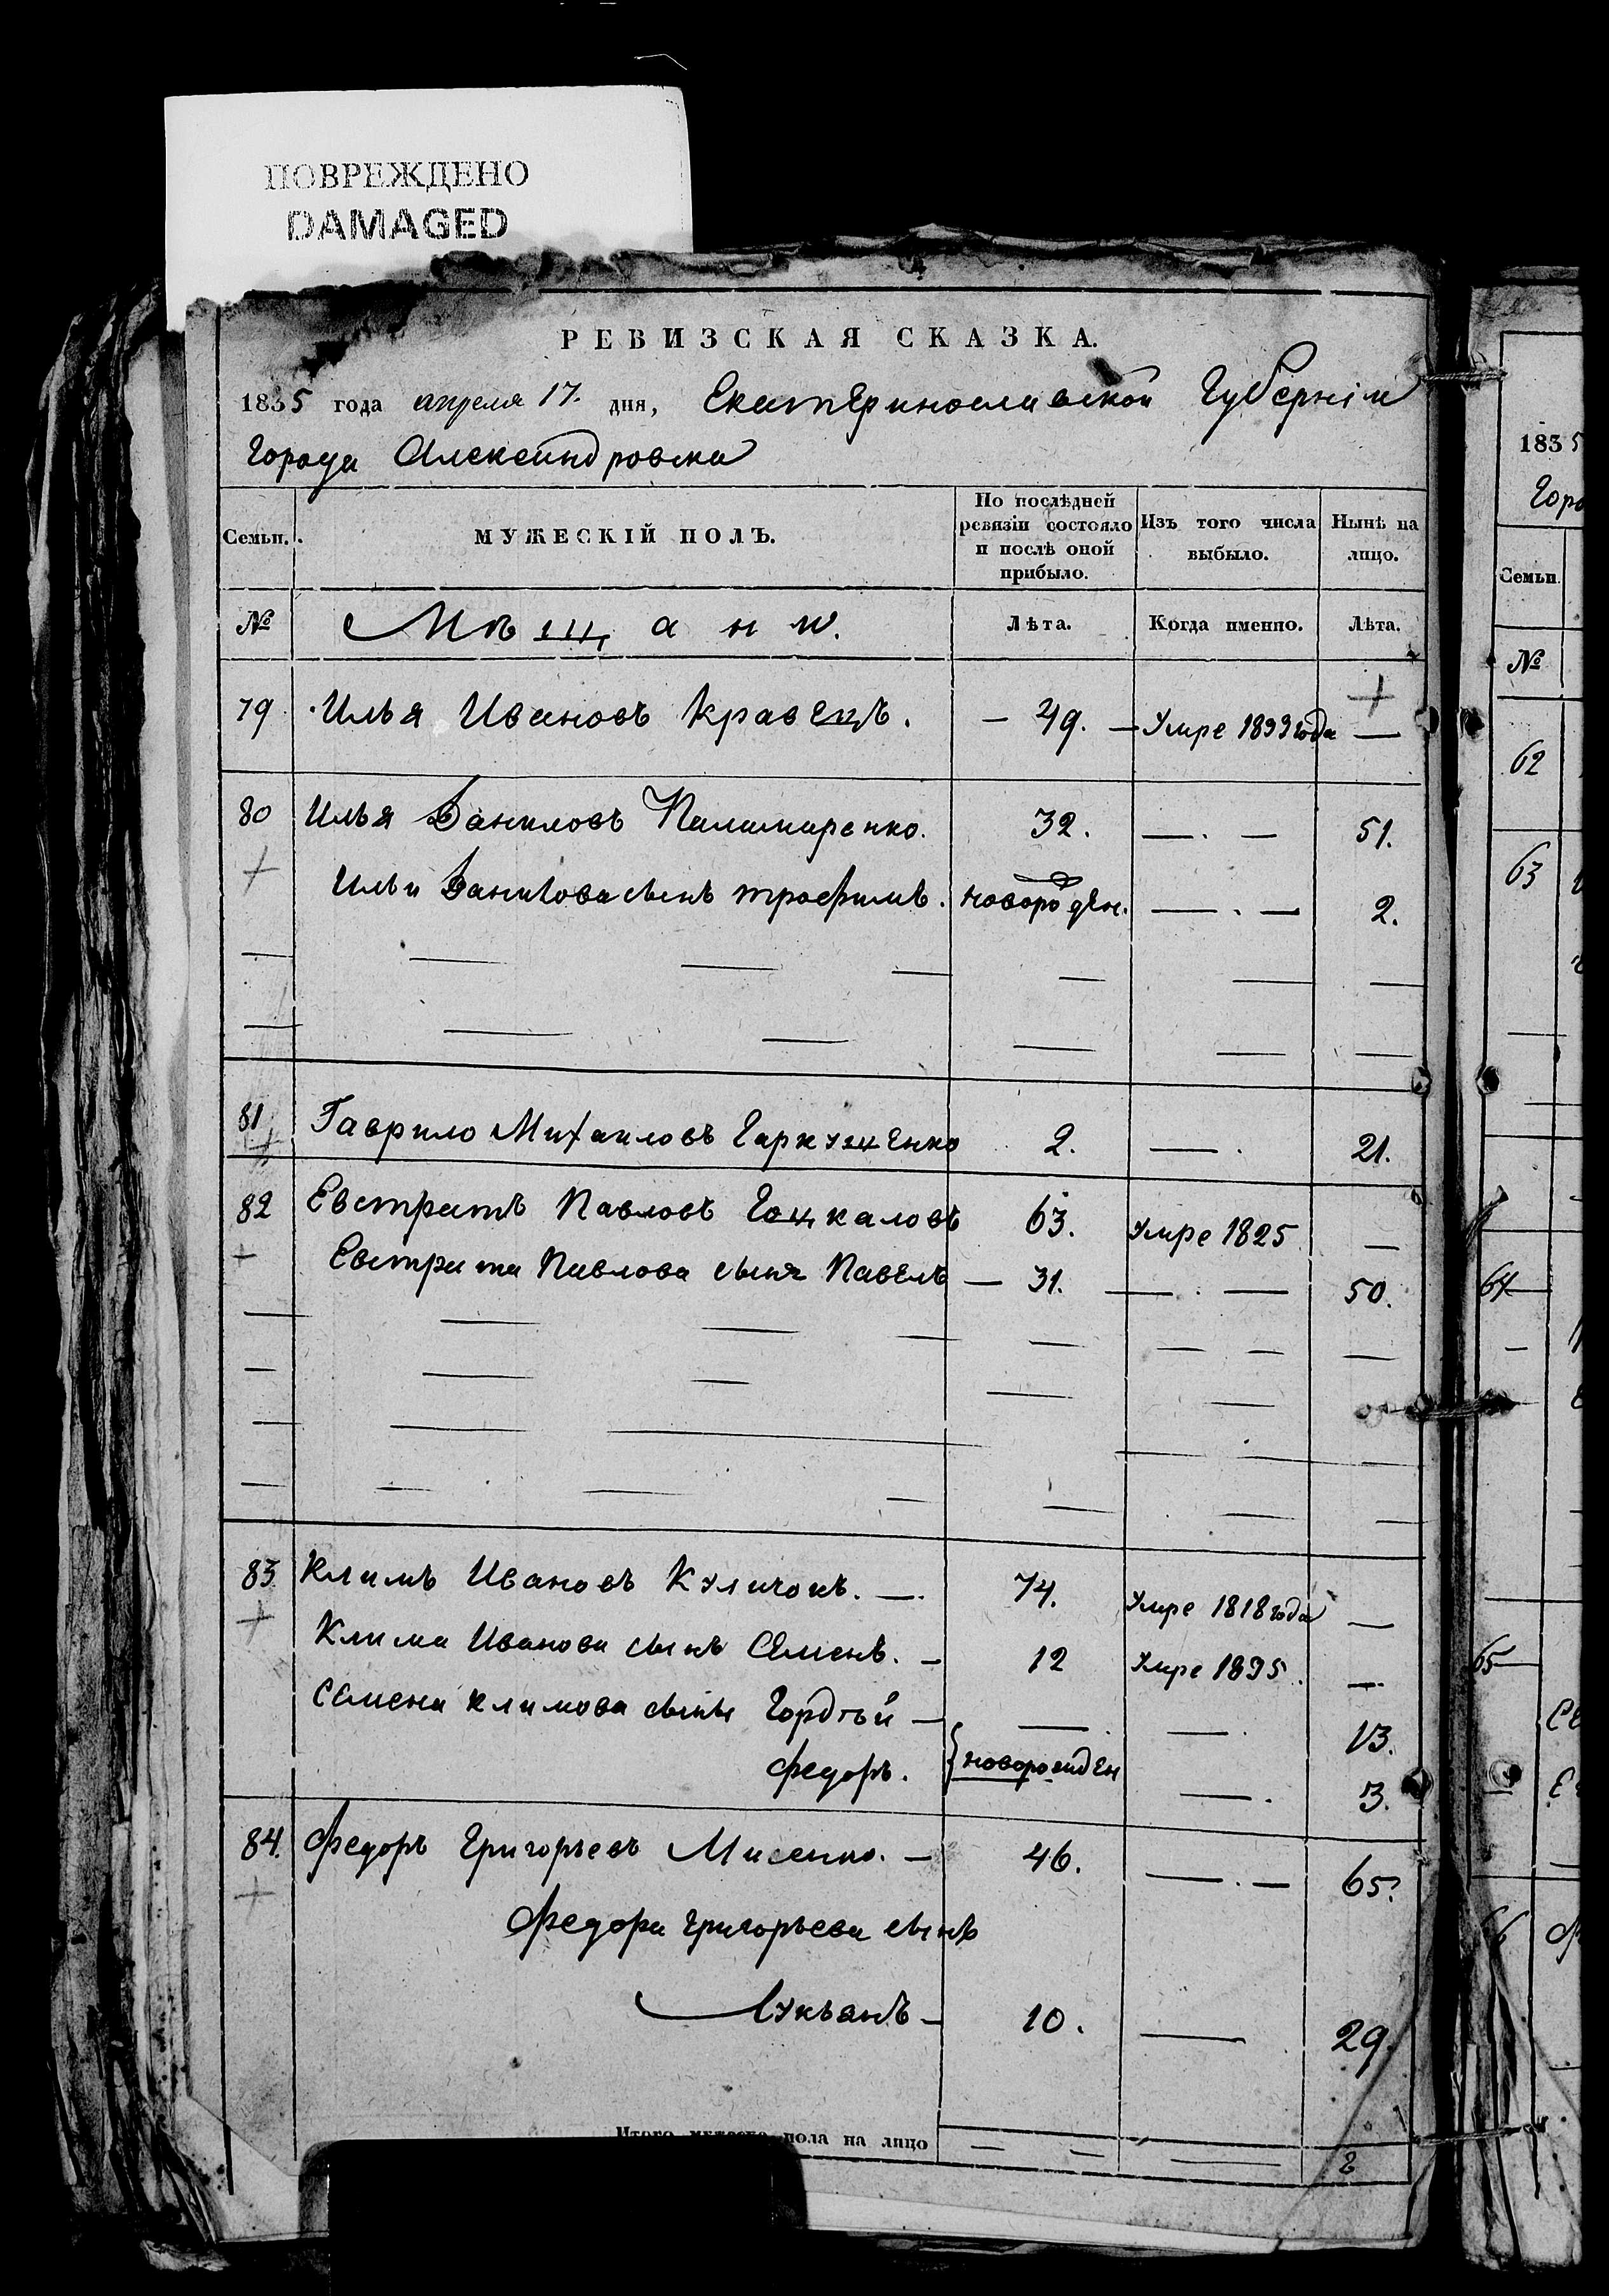 ПОВРЕЖДЕНО
DAMAGED
РЕВИЗСКАЯ СКАЗКА.
1835 года апреля 17. дня, Екатеринославской Губерніи
Города Александровска
Семьи. МУЖЕСКІЙ ПОЛЪ. По послѣдней ревизіи состояло и послѣ оной прибыло. Изъ того числа выбыло. Нынѣ на лицо.
№ Мѣщане. Лѣта. Когда именно. Лѣта.
79 Илья Ивановъ Кравецъ. — 49. — Умре 1833 года —
80 Илья Даниловъ Паламаренко. 32. — . — 51.
Ильи Данилова сынъ трофимъ. новорожден. — . — 2.
81 Гаврило Михаиловъ Гаркущенко 2. — . 21.
82 Евстратъ Павловъ Гоцкаловъ 63. Умре 1825 —
Евстрата Павлова сынъ Павелъ — 31. — . — 50.
83 Климъ Ивановъ Куличокъ. — 74. Умре 1818 года —
Клима Иванова сынъ Семенъ. — 12 Умре 1835. —
Семена Климова сынъ Гордѣй — — — . 13.
Федоръ. {новорожден — . 3.
84. Федоръ Григорьевъ — 46. — . — 65.
Федора Григорьева сынъ
Лукьянъ — 10. — 29.
Итого пола на лицо — — — 8
1835
Горо
Семьи
№
62
63
64
65